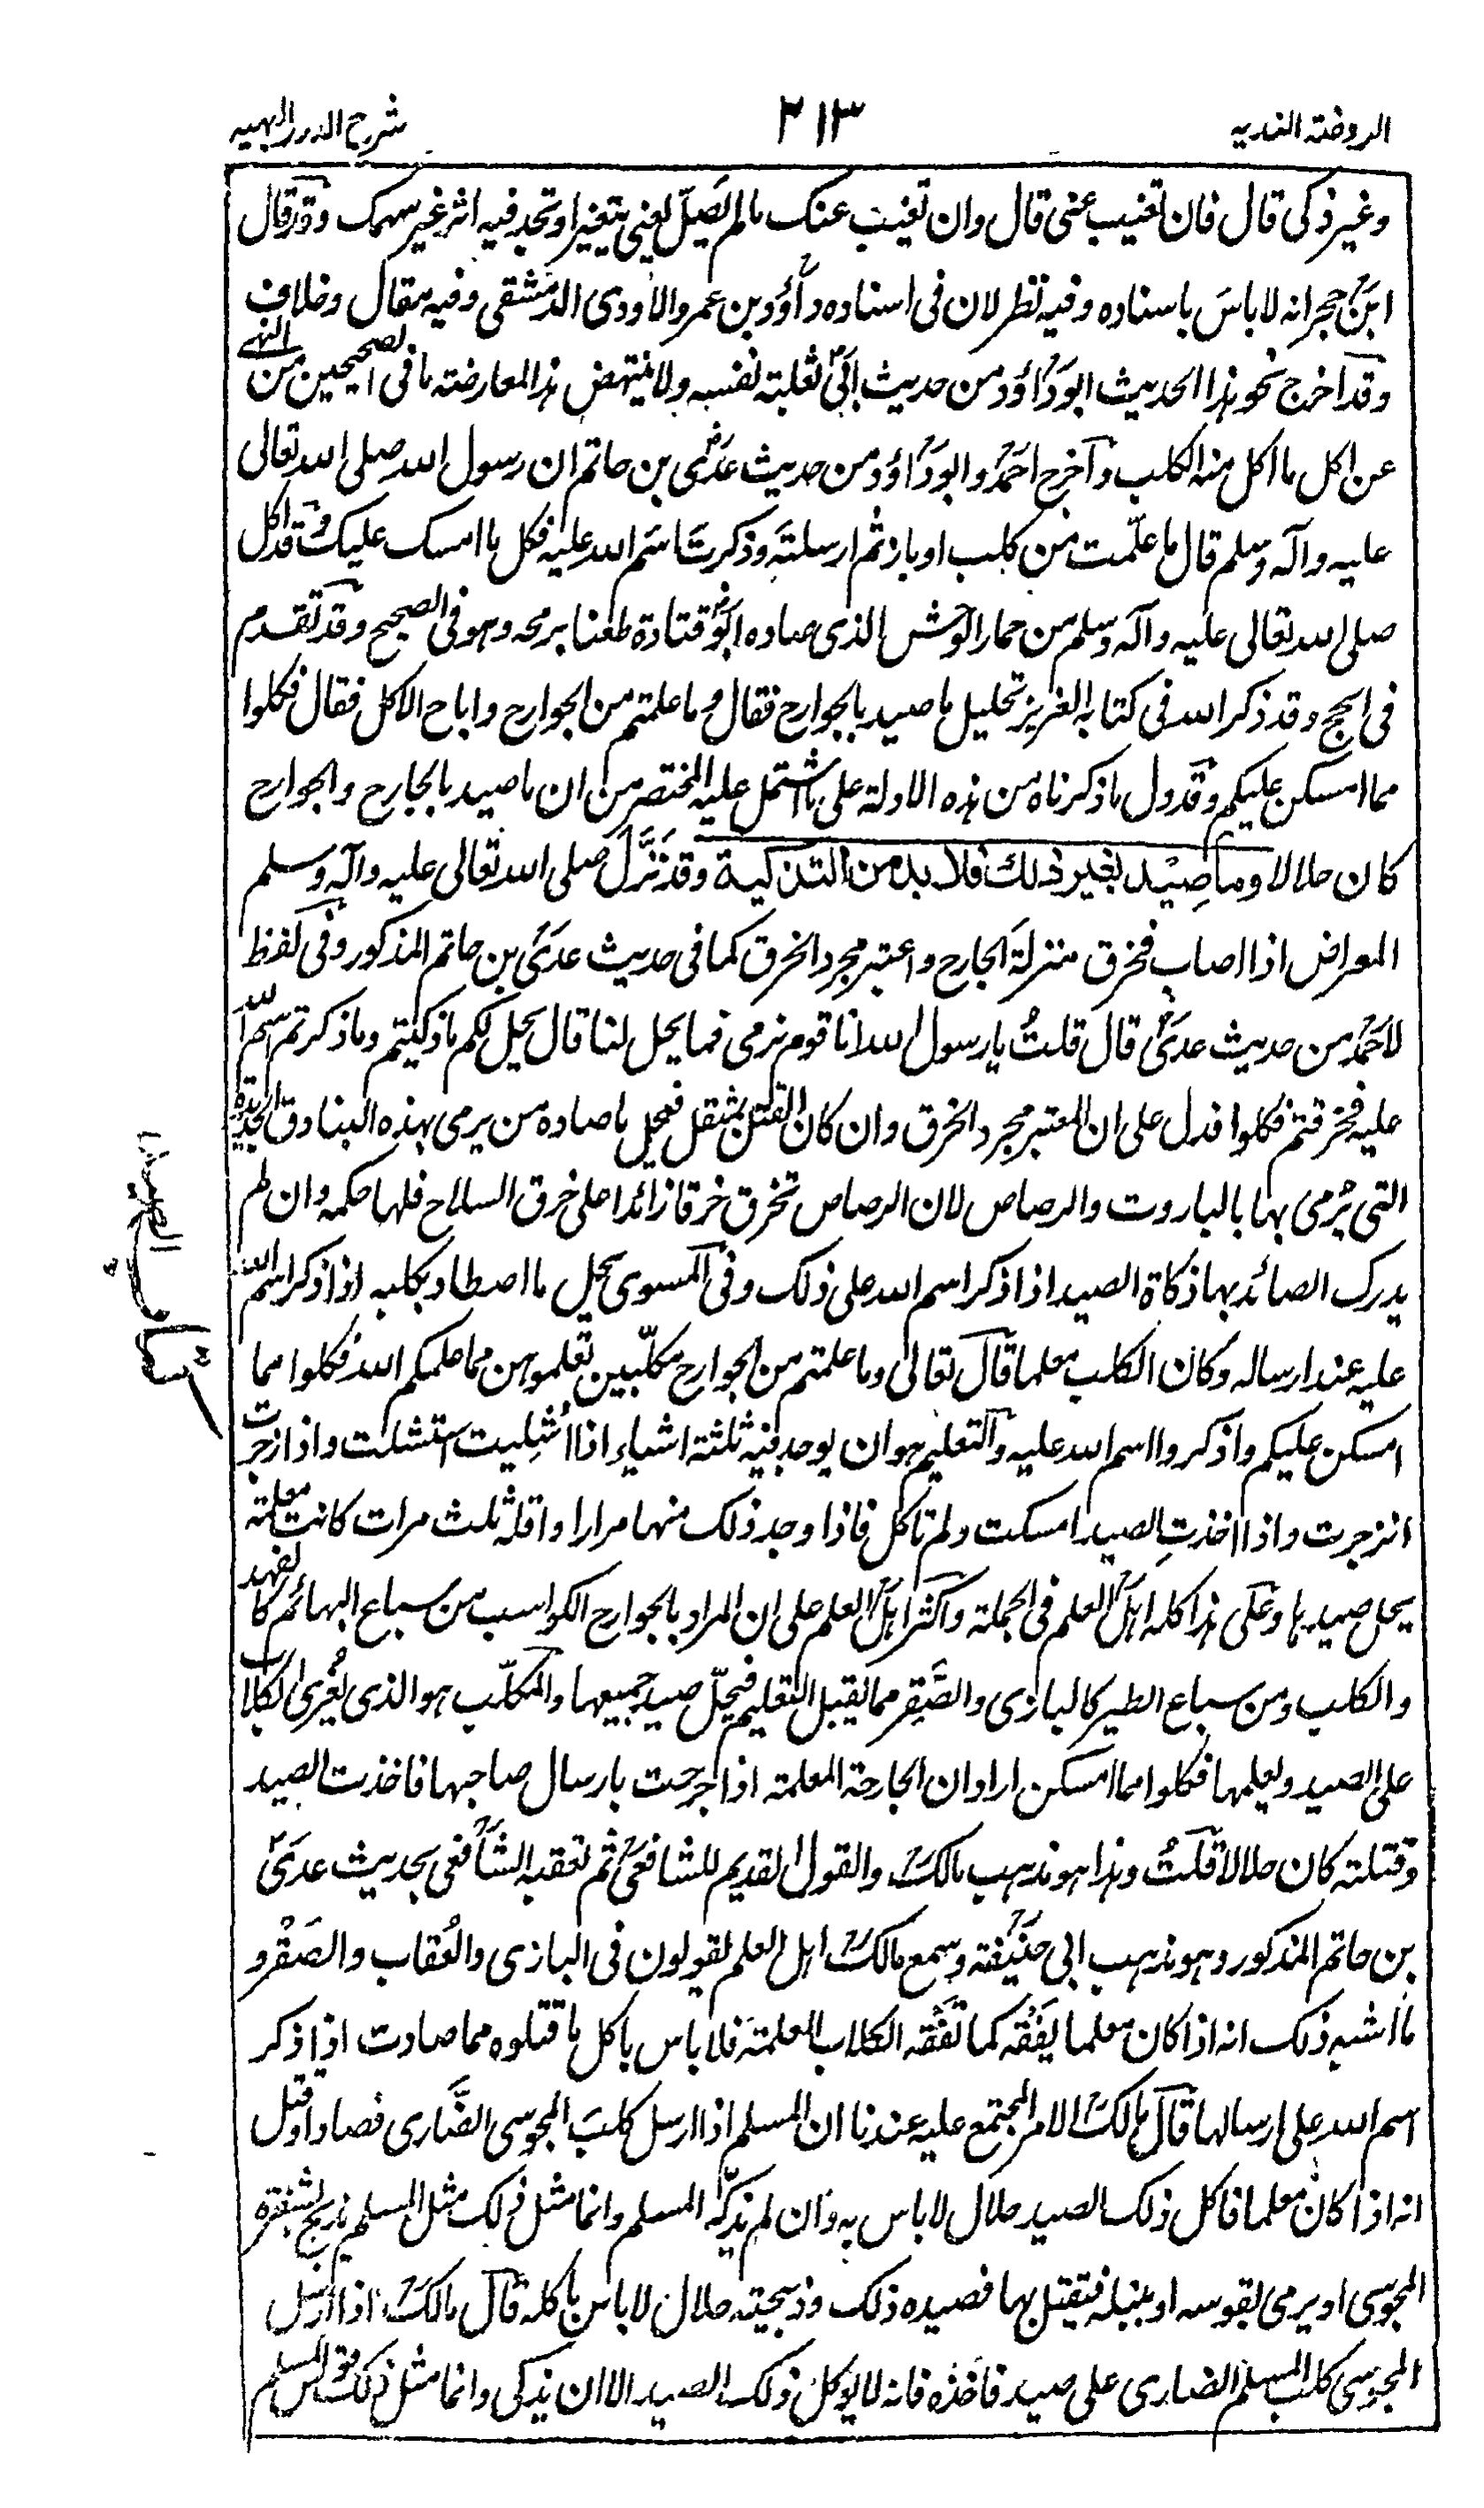 الروضة الندیه ۲۱۳ شرح الدرر البهیه
وغير ذكى قال فان تغيب عنى قال وان تغيب عنك مالم يَصِلّ يعنى يتغير او تجد فيه اثر غير سهمك وقد قال
ابن حجر انه لا باسَ باسناده وفيه نظر لان فى اسناده داؤد بن عمرو الاودى الدمشقى وفيه مقال وخلاف
وقد اخرج نحو هذا الحديث ابوداؤد من حديث ابى ثعلبة نفسه ولا ينتهض هذا لمعارضة ما فى الصحيحين من النهى
عن اكل ما اكل منه الكلب واخرج احمد وابوداؤد من حديث عدى بن حاتم ان رسول الله صلى الله تعالى
عليه وآله وسلم قال ما علّمت من كلب او باز ثم ارسلته وذكرت اسم الله عليه فكل ما امسك عليك وقد اكل
صلى الله تعالى عليه وآله وسلم من حمار الوحش الذى صاده ابو قتادة طعنا برمحه وهو فى الصحيح وقد تقدم
فى الحج وقد ذكر الله فى كتابه العزيز تحليل ما صيد بالجوارح فقال وما علمتم من الجوارح واباح الاكل فقال فكلوا
مما امسكن عليكم وقد دل ما ذكرناه من هذه الادلة على ما اشتمل عليه المختصر من ان ما صيد بالجارح والجوارح
كان حلالا وما صِيْد بغير ذلك فلا بد من التذكية وقد نَزَّلَ صلى الله تعالى عليه وآله وسلم
المعراض اذا اصاب فخرق منزلة الجارح واعتبر مجرد الخرق كما فى حديث عدى بن حاتم المذكور وفى لفظ
لاحمد من حديث عدى قال قلتُ يا رسول الله انا قوم نرمى فما يحل لنا قال يحل لكم ما ذكيتم وما ذكرتم اسم الله
عليه فخرقتم فكلوا فدل على ان المعتبر مجرد الخرق وان كان القتل بمثقل فيحل ما صاده من يرمى بهذه البنادق الجديدة
التى يُرمى بها بالباروت والرصاص لان الرصاص تخرق خرقا زائدا على خرق السلاح فلها حكمه وان لم
يدرك الصائد بها ذكاة الصيد اذا ذكر اسم الله على ذلك وفى المسوى يحل ما اصطاد بكلبه اذا ذكر اسم الله
عليه عند ارساله وكان الكلب معلما قال تعالى وما علمتم من الجوارح مكلّبين تعلمونهن مما علمكم الله فكلوا مما
امسكن عليكم واذكروا اسم الله عليه والتعليم هو ان يوجد فيه ثلثة اشياء اذا اُشْلِيت استشلت واذا زجرت
انزجرت واذا اخذتِ الصيد امسكت ولم تاكل فاذا وجد ذلك منها مرارا واقله ثلث مرات كانت معلمة
يحل صيدها وعلى هذا كله اهل العلم فى الجملة واكثر اهل العلم على ان المراد بالجوارح الكواسب من سباع البهائم كالفهد
والكلب ومن سباع الطير كالبازى والصَّقِر مما يقبل التعليم فيحلّ صيد جميعها والمكلّب هو الذى يُغْرى الكلاب
على الصيد ويعلمها فكلوا مما امسكن اراد ان الجارحة المعلمة اذا جرحت بارسال صاحبها فاخذت الصيد
وقتلته كان حلالا قلتُ وهذا هو مذهب مالك والقول القديم للشافعى ثم تعقبه الشافعى بحديث عدى
بن حاتم المذكور وهو مذهب ابى حنيفة وسمع مالك اهل العلم يقولون فى البازى والعُقاب والصَقْر و
ما اشبه ذلك انه اذا كان معلما يَفْقَه كما تَفْقَه الكلاب المعلمة فلا باس باكل ما قتلوه مما صادت اذا ذكر
اسم الله على ارسالها قال مالك الامر المجتمع عليه عندنا ان المسلم اذا ارسل كلبَ المجوسى الضَّارى فصاد او قتل
انه اذا كان معلما فاكل ذلك الصيد حلال لا باس به وان لم يذكّه المسلم وانما مثل ذلك مثل المسلم يذبح بشفرة
المجوسى او يرمى بقوسه او بنبله فيقتل بها فصيده ذلك وذبيحته حلال لا باس باكله قال مالك اذا ارسل
المجوسى كلب المسلم الضارى على صيد فاخذه فانه لا يؤكل ذلك الصيد الا ان يذكى وانما مثل ذلك قوس المسلم